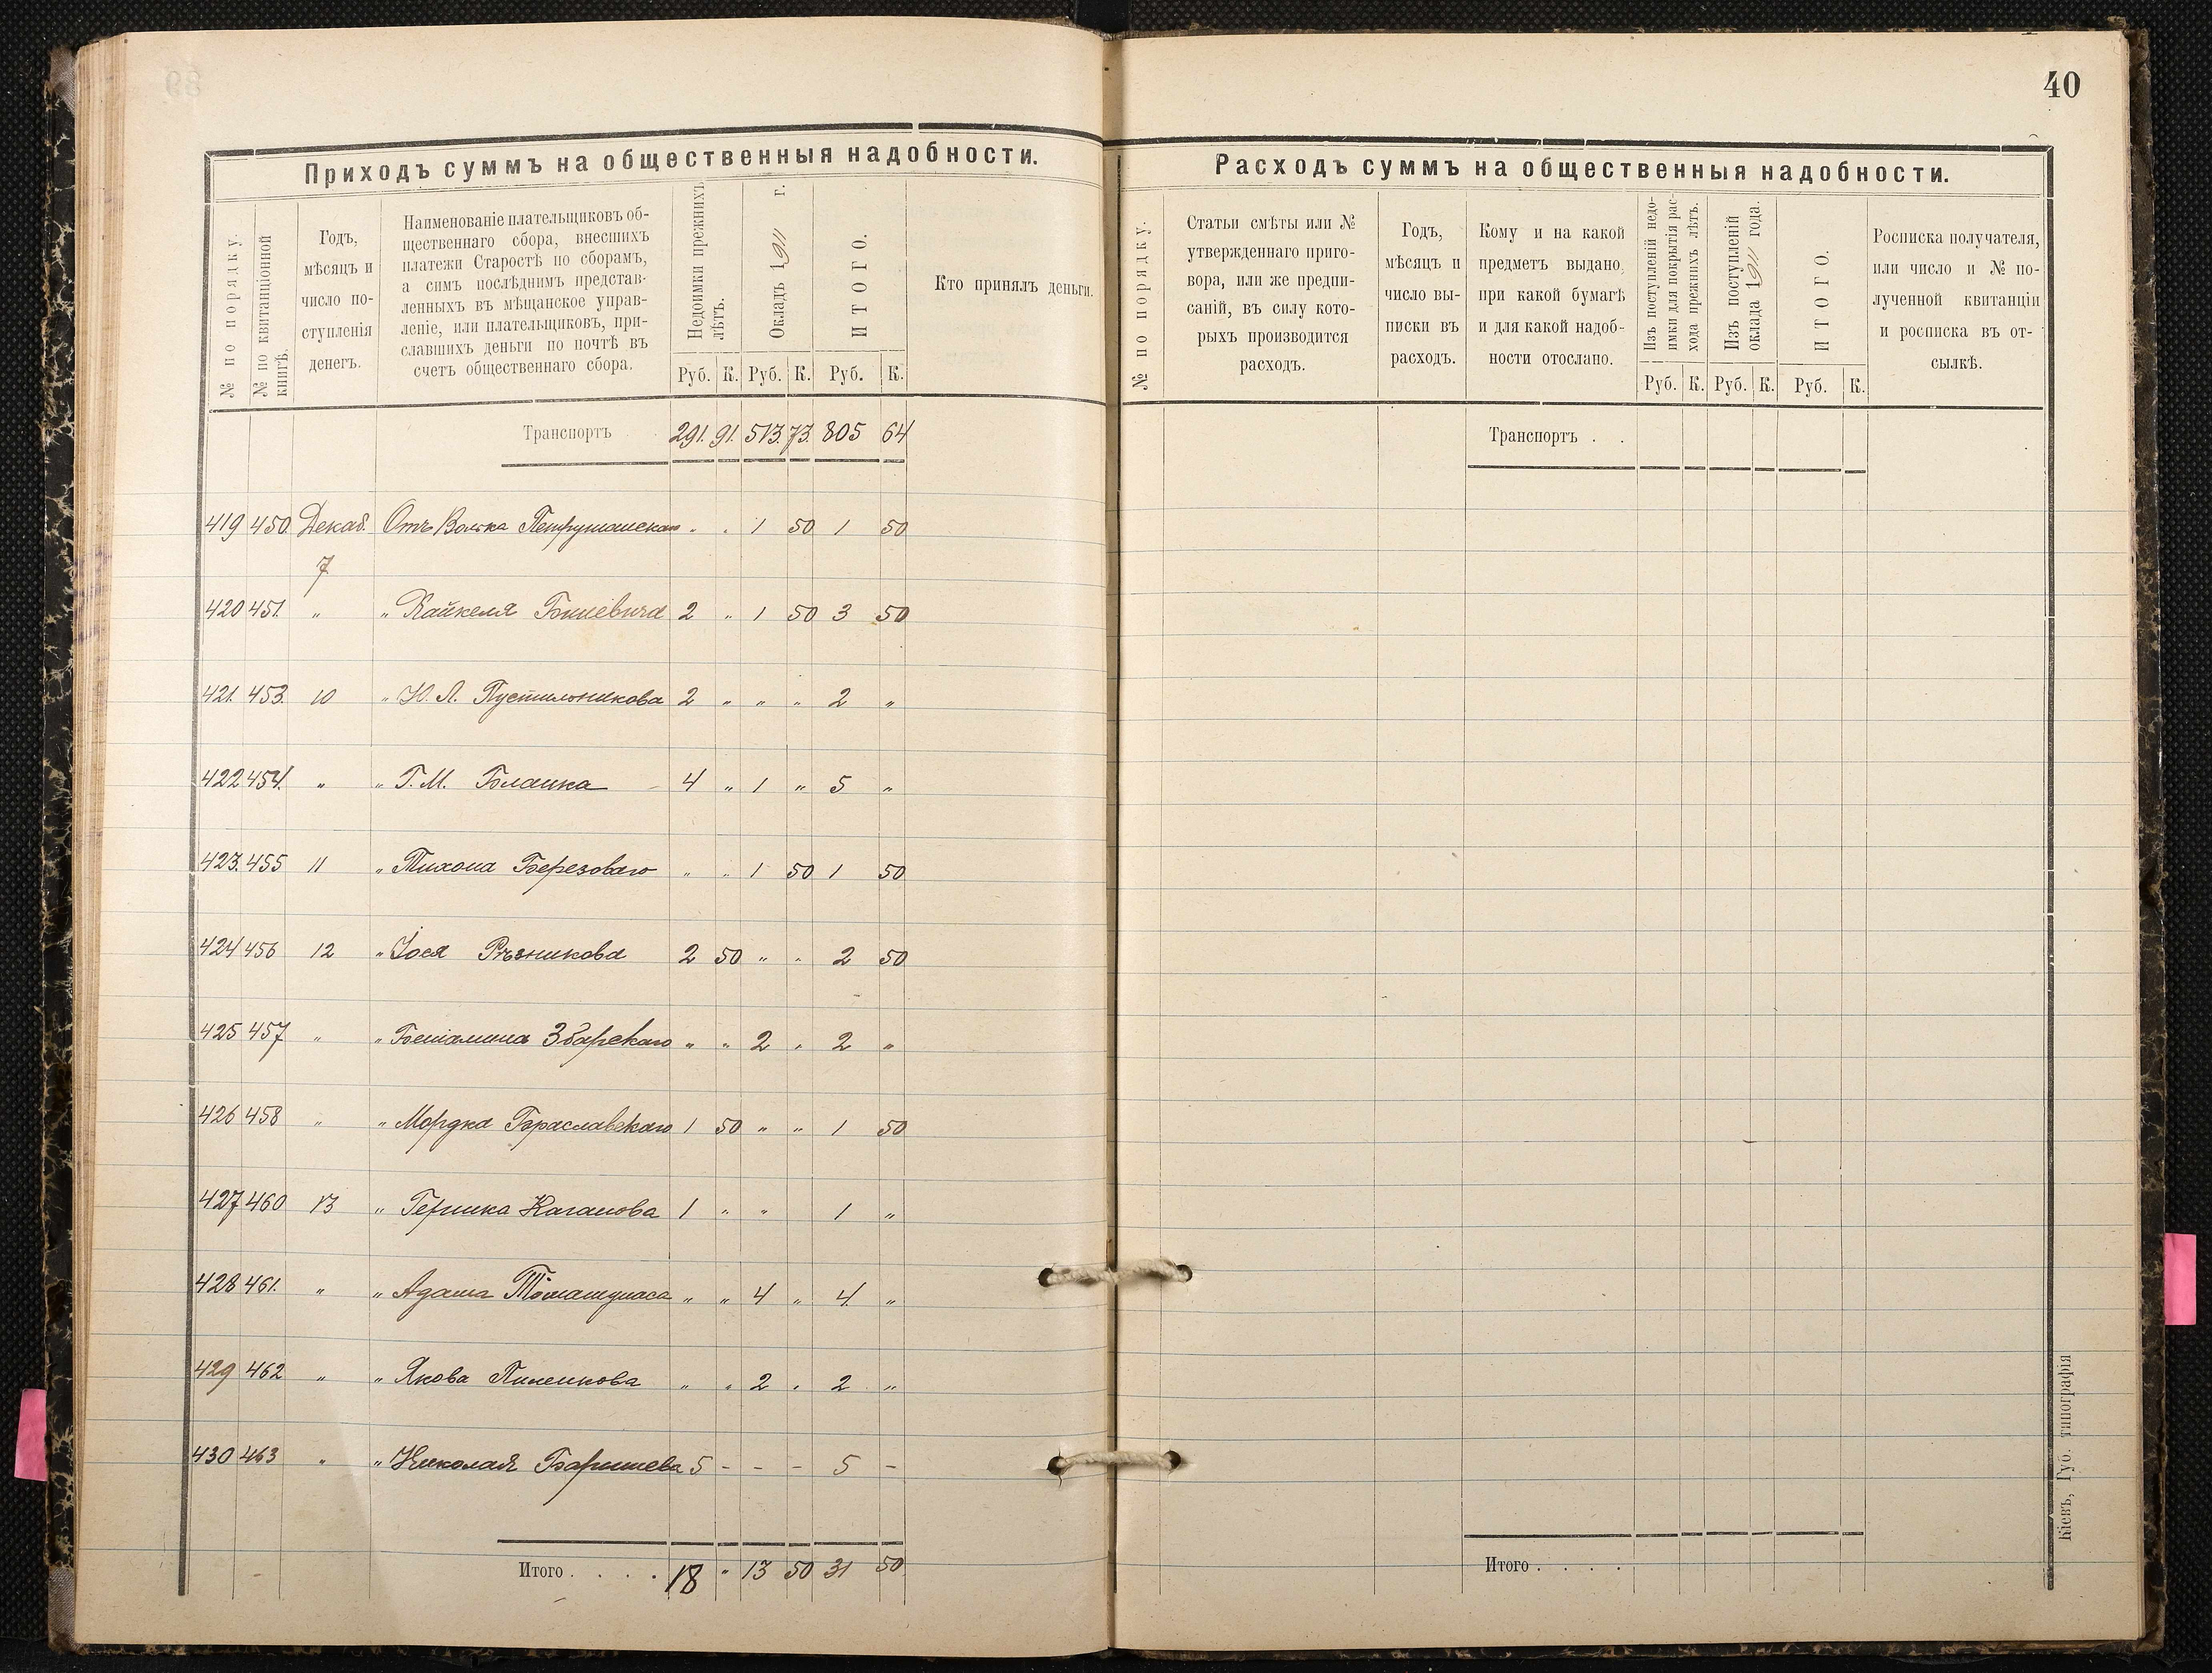 40
Приходъ суммъ на общественныя надобности.
№ по порядку.
№ по квитанціонной книгѣ.
Годъ, мѣсяцъ и число поступленія денегъ.
Наименованіе плательщиковъ об-
щественнаго сбора, внесшихъ
платежи Старостѣ по сборамъ,
а симъ послѣднимъ представ-
ленныхъ въ мѣщанское управ-
леніе, или плательщиковъ, при-
славшихъ деньги по почтѣ въ
счетъ общественнаго сбора.
Недоимки прежнихъ лѣтъ.
Окладъ 1911 г.
ИТОГО.
Кто принялъ деньги.
Руб. К. Руб. К. Руб. К.
Транспортъ 291. 91. 513. 73. 805 64
419 450. Декаб. 7 Отъ Волька " . 1 50 1 50
420 451. " " 2 " 1 50 3 50
421. 453. 10 " Ю. Л. Пустильникова 2 " " " 2 "
422 454. " " Г. М. Бланка 4 " 1 " 5 "
423. 455 11 " Тихона Березоваго " " 1 50 1 50
424 456 12 " Іося Рѣзникова 2 50 " " 2 50
425 457 " " Беніамина Збарскаго " " 2 " 2 "
426 458 " " Мордка Браславскаго 1 50 " " 1 50
427 460 13 " Гершка Каганова 1 " " 1 "
428 461. " " Адама " " 4 " 4. "
429 462 " " Якова Пиленкова " " 2 " 2 "
430 463 " " Николая Барышева 5 - - - 5 -
Итого . . . . 18 " 13 50 31 50
Расходъ суммъ на общественныя надобности.
№ по порядку.
Статьи смѣты или №
утвержденнаго приго-
вора, или же предпи-
саній, въ силу кото-
рыхъ производится
расходъ.
Годъ,
мѣсяцъ и
число вы-
писки въ
расходъ.
Кому и на какой
предметъ выдано,
при какой бумагѣ
и для какой надоб-
ности отослано.
Изъ поступленій недо-
имки для покрытія рас-
хода прежнихъ лѣтъ.
Изъ поступленій
оклада 1911 года.
ИТОГО.
Росписка получателя,
или число и № по-
лученной квитанціи
и росписка въ от-
сылкѣ.
Руб. К. Руб. К. Руб. К.
Транспортъ . .
Итого . . . .
Кіевъ, Губ. типографія